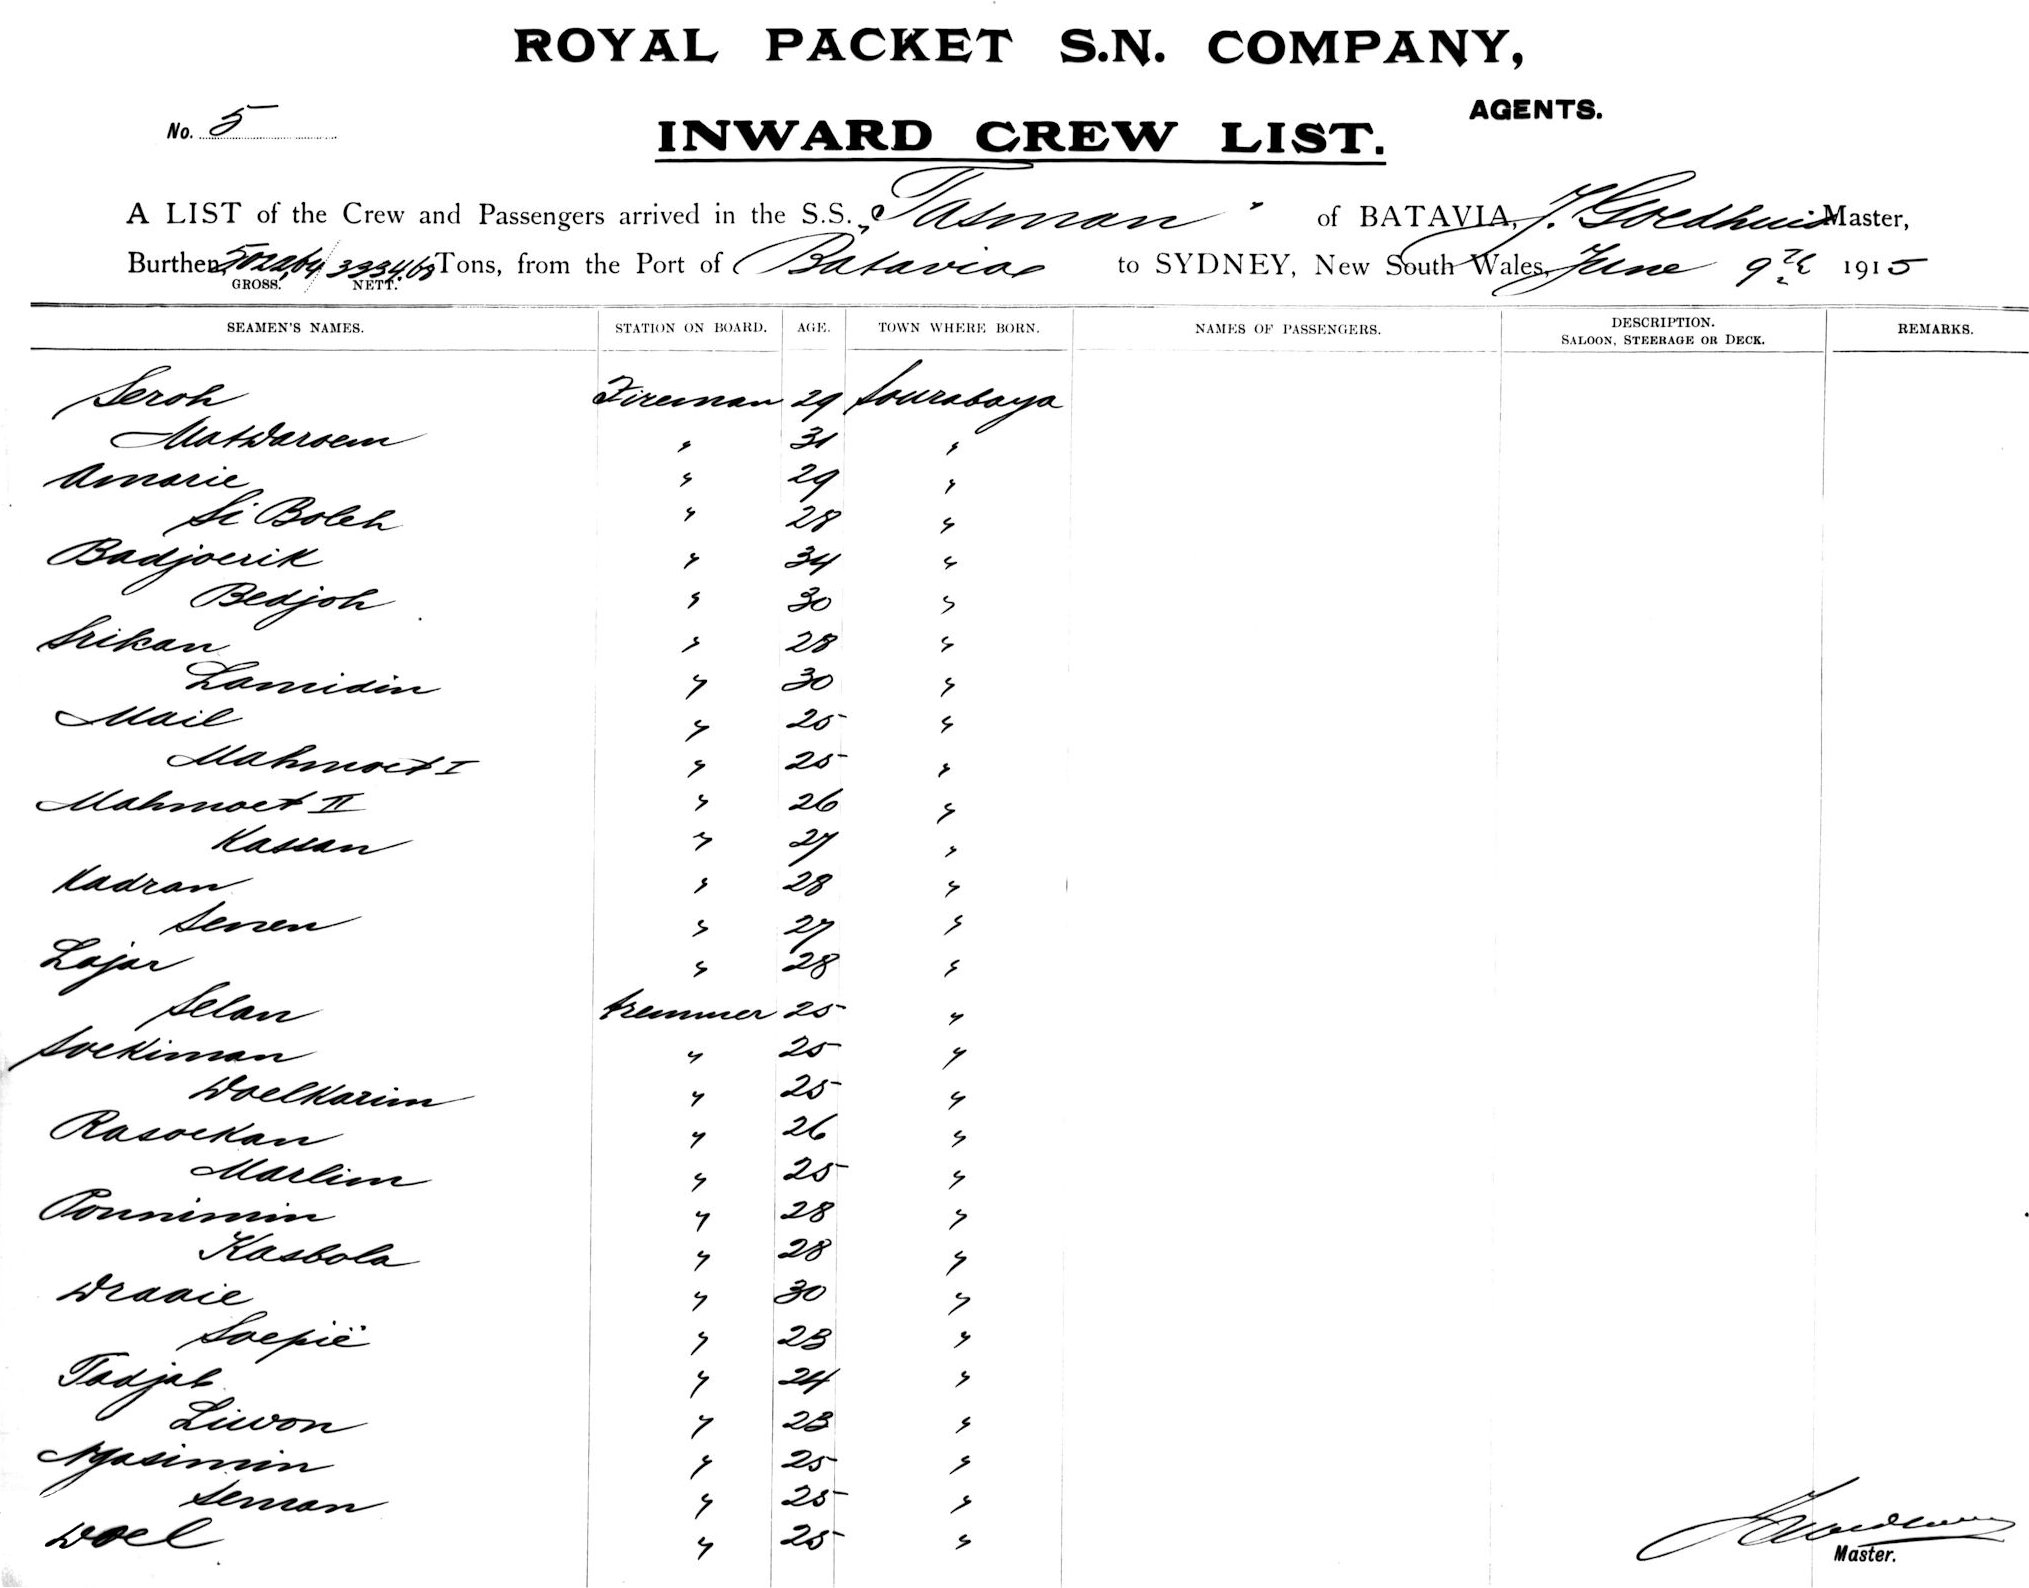 ROYAL PACKET S.N. COMPANY,
AGENTS.
No. 5
INWARD CREW LIST.
A LIST of the Crew and Passengers arrived in the S.S. „Tasman" of BATAVIA, J. Goedhuis Master,
Burthen 5022,64 / 3334.63 Tons, from the Port of Batavia to SYDNEY, New South Wales, June 9th 1915
GROSS. NETT.
SEAMEN'S NAMES. STATION ON BOARD. AGE. TOWN WHERE BORN. NAMES OF PASSENGERS. DESCRIPTION. SALOON, STEERAGE OR DECK. REMARKS.
Seroh Fireman 29 Sourabaya
Matdaroem " 31 "
Amarie " 29 "
Si Boleh " 28 "
Badjoerik " 34 "
Bedjoh " 30 "
Srikan " 28 "
Lamidin " 30 "
Mail " 25 "
Mahmoet I " 25 "
Mahmoet II " 26 "
Kassan " 27 "
Kadran " 28 "
Senen " 27 "
Lajar " 28 "
Selan tremmer 25 "
Soekiman " 25 "
Doelkarim " 25 "
Rasoekan " 26 "
Marlim " 25 "
Ponnimin " 28 "
Kasbola " 28 "
Draaie " 30 "
Soepië " 23 "
Tadjab " 24 "
Liwon " 23 "
Ngasimin " 25 "
Seman " 25 "
Doel " 25 "
Master.